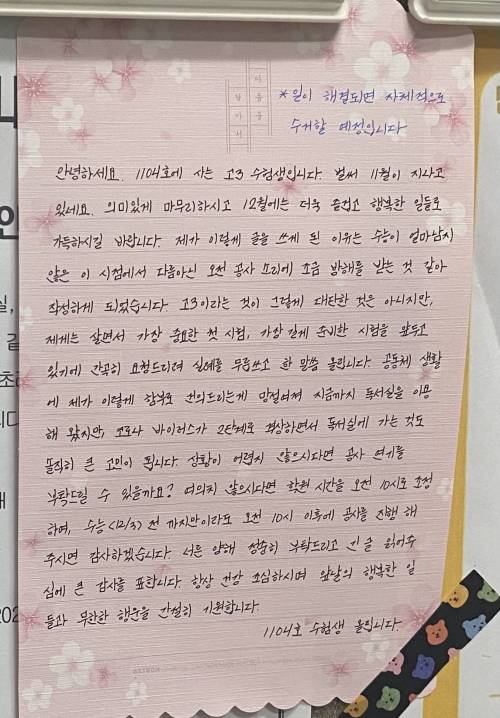 마음을
담아서
*일이 해결되면 자체적으로
수거할 예정입니다
안녕하세요. 1104호에 사는 고3 수험생입니다. 벌써 11월이 지나고
있네요. 의미있게 마무리하시고 12월에는 더욱 즐겁고 행복한 일들로
가득하시길 바랍니다. 제가 이렇게 글을 쓰게 된 이유는 수능이 얼마남지
않은 이 시점에서 다름아닌 오전 공사 소리에 조금 방해를 받는 것 같아
작성하게 되었습니다. 고3이라는 것이 그렇게 대단한 것은 아니지만,
제게는 살면서 가장 중요한 첫 시험, 가장 길게 준비한 시험을 앞두고
있기에 간곡히 요청드리려 실례를 무릅쓰고 한 말씀 올립니다. 공동체 생활
에 제가 이렇게 함부로 건의드리는게 망설여져 지금까지 독서실을 이용
해 왔지만, 코로나 바이러스가 2단계로 격상하면서 독서실에 가는 것도
솔직히 큰 고민이 됩니다. 상황이 어렵지 않으시다면 공사 연기를
부탁드릴 수 있을까요? 여의치 않으시다면 학원 시간을 오전 10시로 조정
하며, 수능(12/3) 전 까지만이라도 오전 10시 이후에 공사를 진행 해
주시면 감사하겠습니다. 너른 양해 정중히 부탁드리고 긴 글 읽어주
심에 큰 감사를 표합니다. 항상 건강 조심하시며 앞날의 행복한 일
들과 무한한 행운을 간절히 기원합니다.
1104호 수험생 올립니다.